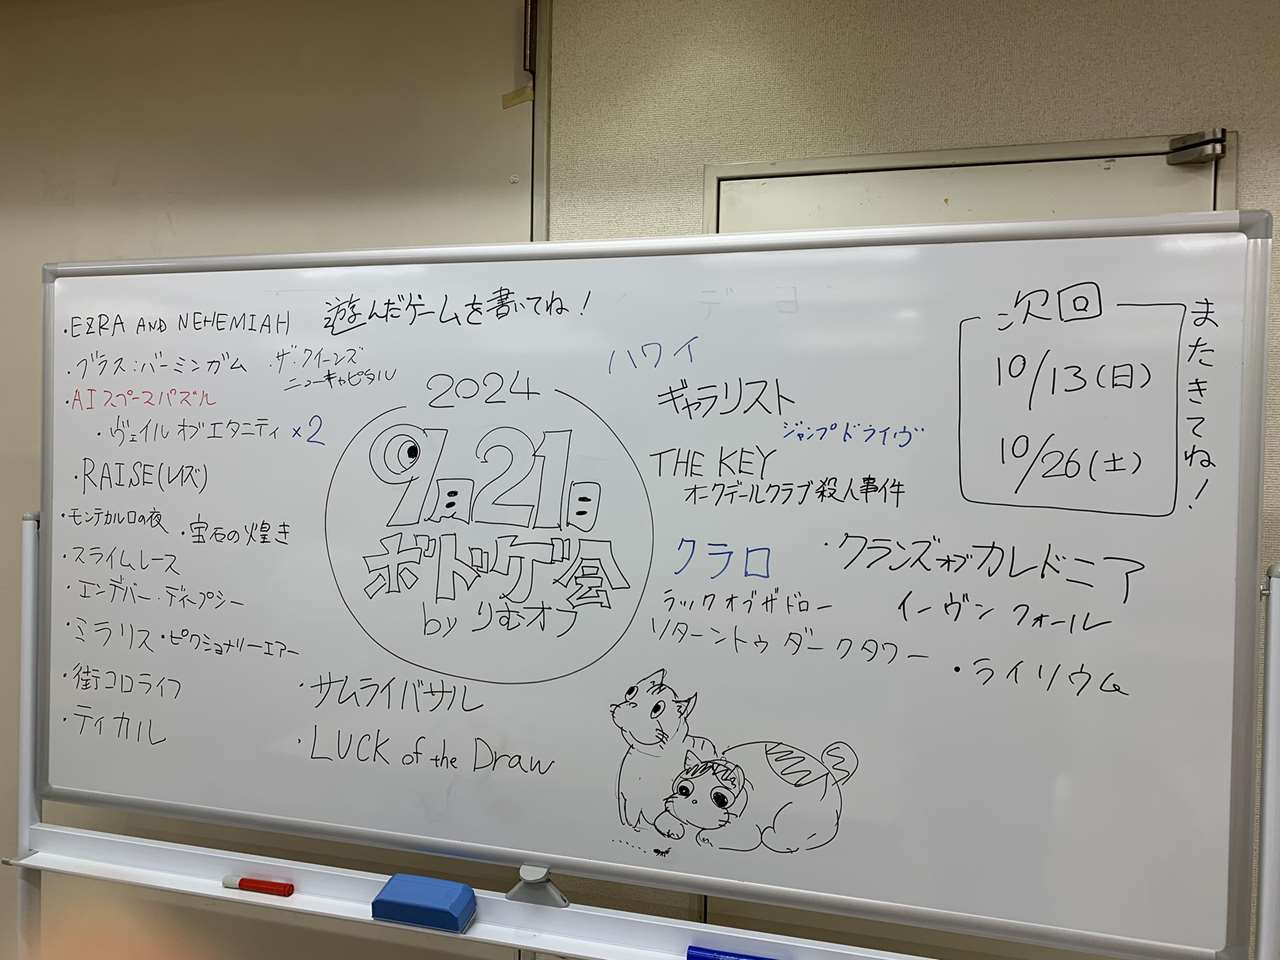 ・EZRA AND NEHEMIAH
遊んだゲームを書いてね!
・ブラス:バーミンガム
・ザ・クイーンズ
ニューキャピタル
・AIスペースパズル
・ヴェイル オブ エタニティ ×2
・RAISE(レイズ)
・モンテカルロの夜
・宝石の煌き
・スライムレース
・エンデバー・ディープシー
・ミラリス
・ピクショナリーエアー
・街コロライフ
・ティカル
2024
9月21日
ボドゲ会
by りむオフ
・サムライバサル
・LUCK of the Draw
ハワイ
ギャラリスト
ジャンプドライヴ
THE KEY
オークデールクラブ殺人事件
クラロ
・クランズオブカレドニア
ラックオブザドロー
イーヴンフォール
リターントゥダークタワー
・ライリウム
次回
10/13(日)
10/26(土)
またきてね!